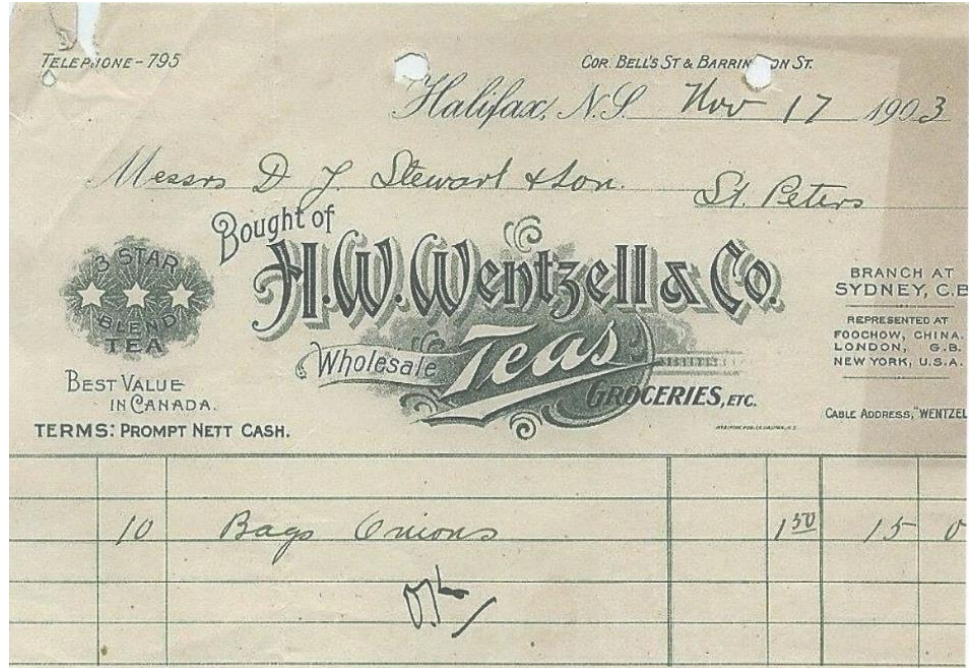 TELEPHONE-795
COR. BELL'S ST & BARRINGTON ST.
Halifax, N.S. Nov 17 1903
Messrs D. J. Stewart & Son. St. Peters
Bought of
H.W. Wentzell & Co.
3 STAR
BLEND
TEA
BEST VALUE
IN CANADA.
TERMS: PROMPT NETT CASH.
Wholesale Teas
GROCERIES, ETC.
BRANCH AT
SYDNEY, C.B
REPRESENTED AT
FOOCHOW, CHINA.
LONDON, G.B.
NEW YORK, U.S.A.
CABLE ADDRESS, "WENTZEL
10 Bags Onions 1 50 15 0